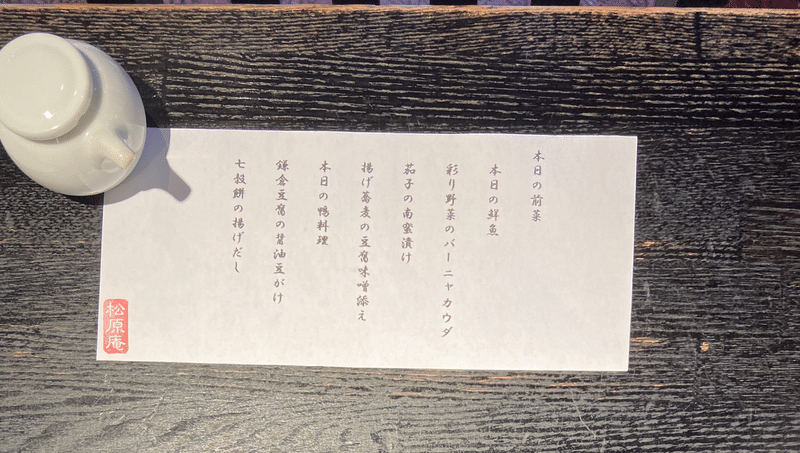 本日の前菜
本日の鮮魚
彩り野菜のバーニャカウダ
茄子の南蛮漬け
揚げ蕎麦の豆腐味噌添え
本日の鴨料理
鎌倉豆腐の醤油豆がけ
七穀餅の揚げだし
松原庵